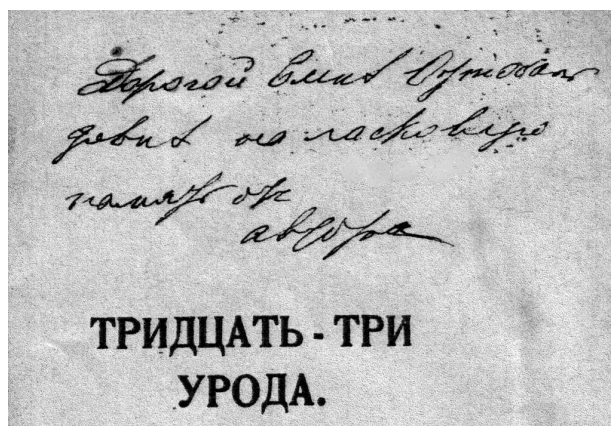 Дорогой
на ласковую
память от
автора
ТРИДЦАТЬ - ТРИ
УРОДА.